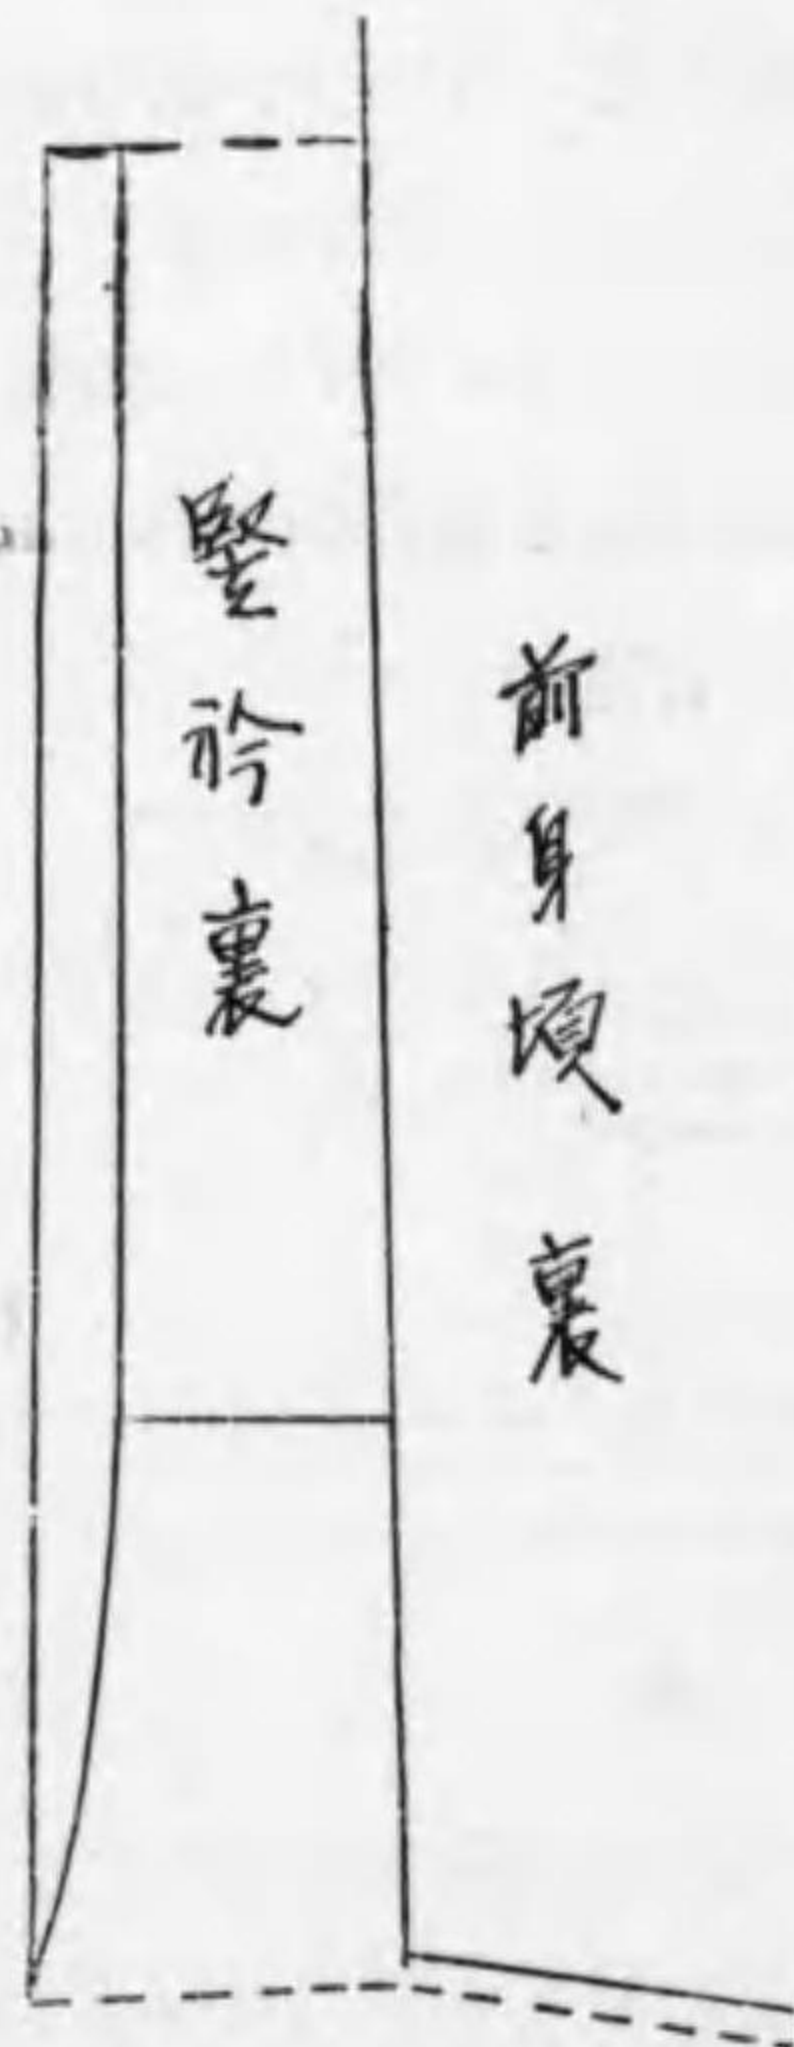 前身頃裏
竪衿裏